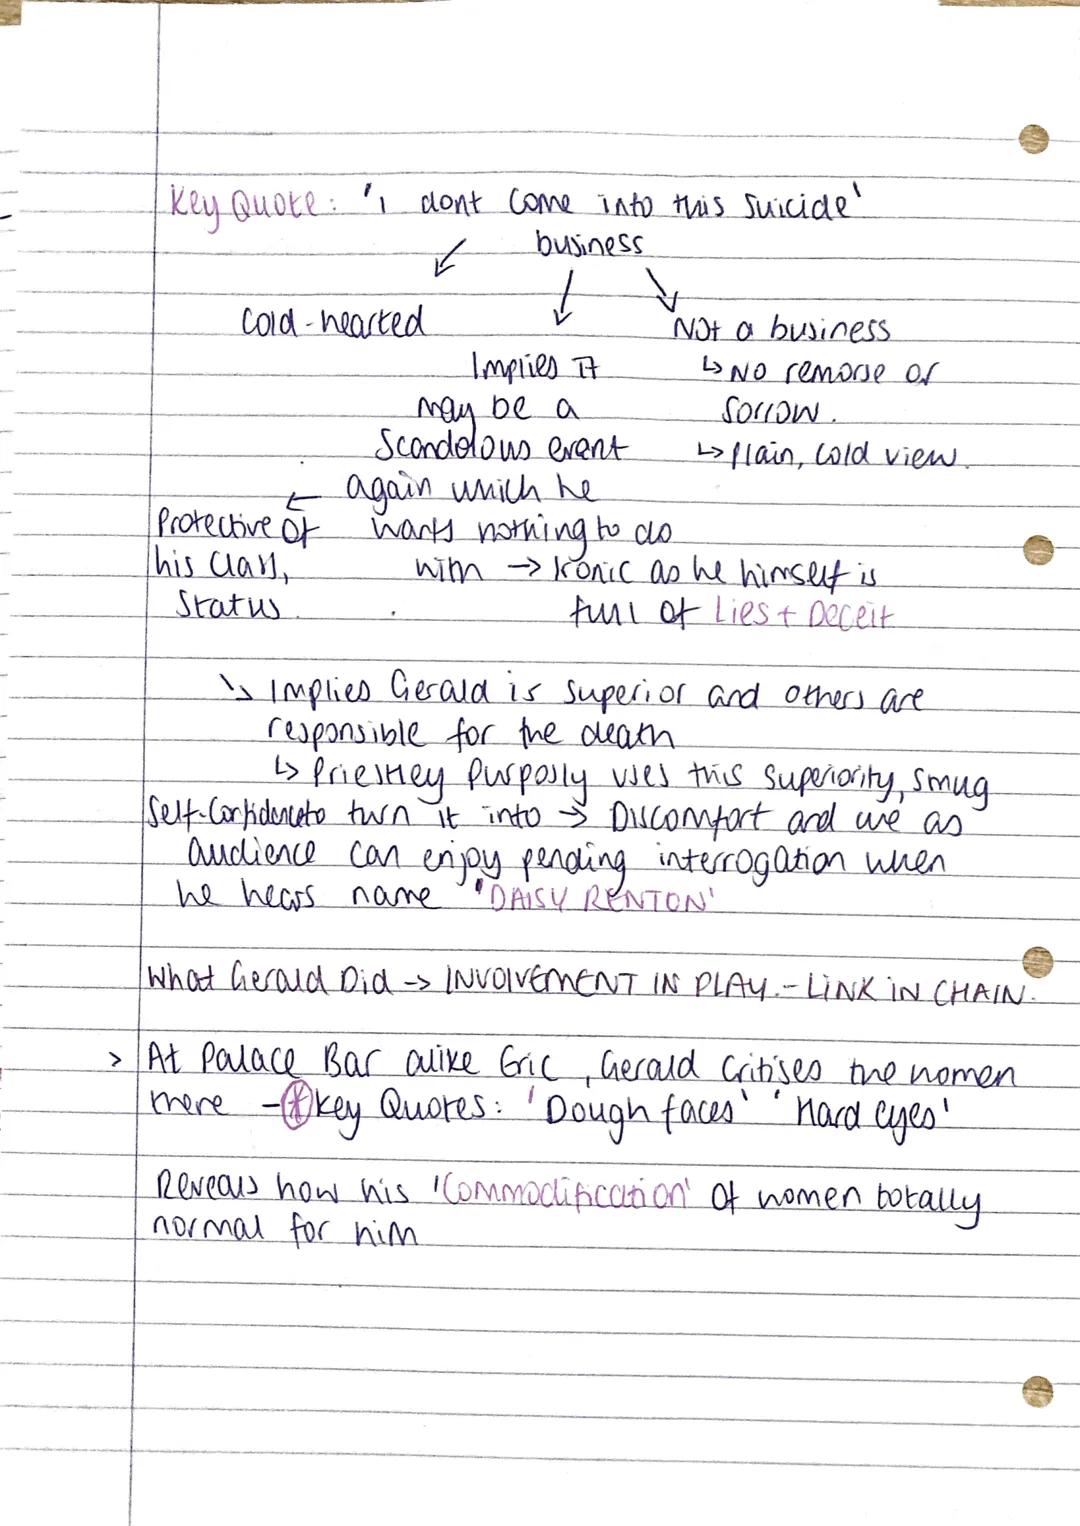 Key Quote: 'i dont Come into this Suicide'
business
Cold-hearted
Implies it
may be a
Scandolous event
again which he
wants nothing to do
with → Ironic as he himself is
full of Lies + Deceit
Not a business
↳ No remorse or
sorrow.
↳ Plain, cold view.
Protective of
his Class,
Status.
↳ Implies Gerald is superior and others are
responsible for the death
↳ Priestley purposly uses this superiority, smug
Self-Confidence to turn it into → Discomfort and we as
audience can enjoy pending interrogation when
he hears name 'DAISY RENTON'
What Gerald Did -> INVOLVEMENT IN PLAY. - LINK IN CHAIN.
> At Palace Bar alike Eric, Gerald Critises the women
there - * Key Quotes: 'Dough faces' 'Hard eyes'
Reveals how his 'Commodification' of women totally
normal for him